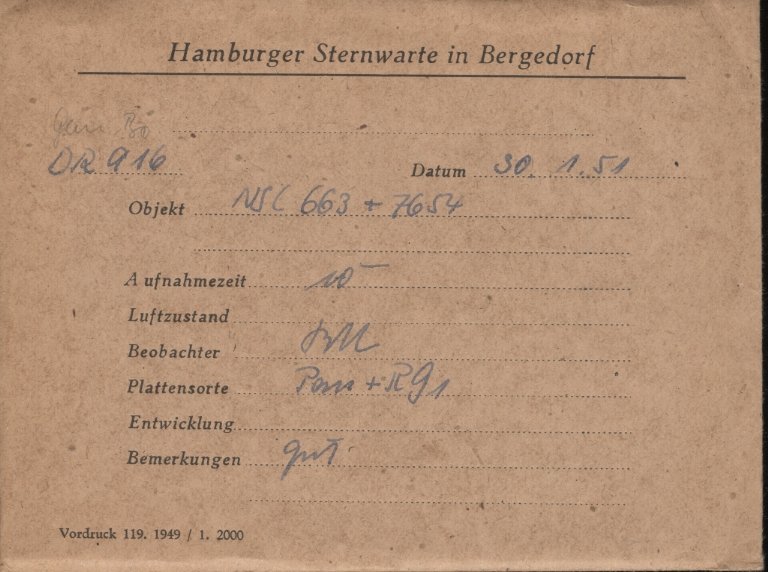 Hamburger Sternwarte in Bergedorf
DR 916
Datum 30. 1. 51
Objekt NGC 663 + 7654
Aufnahmezeit 10
Luftzustand
Beobachter
Plattensorte Pan + RG1
Entwicklung
Bemerkungen gut
Vordruck 119. 1949 / 1. 2000